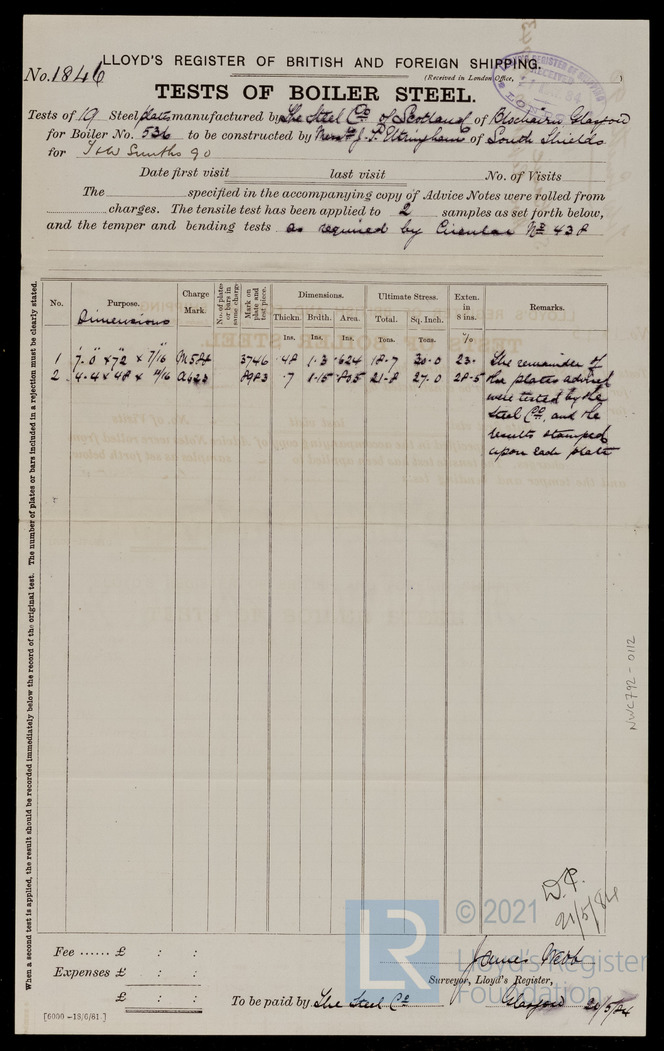 No. 1846
LLOYD'S REGISTER OF BRITISH AND FOREIGN SHIPPING.
(Received in London Office, )
TESTS OF BOILER STEEL.
Tests of 19 Steel plates manufactured by The Steel Co of Scotland of Blochairn Glasgow
for Boiler No. 536 to be constructed by Messrs J. P. Eltringham of South Shields
for T & W Smiths 90
Date first visit last visit No. of Visits
The specified in the accompanying copy of Advice Notes were rolled from
charges. The tensile test has been applied to 2 samples as set forth below,
and the temper and bending tests as required by Circular No 438
No. Purpose. Charge Mark. No. of plates or bars in same charge Mark on plate and test piece. Dimensions. Ultimate Stress. Exten. in 8 ins. Remarks.
Dimensions Thickn. Brdth. Area. Total. Sq. Inch.
Ins. Ins. Ins. Tons. Tons. %
1 7-0 × 72 × 7/16 3746 .48 1.3 .624 18.7 30.0 23. The remainder of
2 4-4 × 48 × 11/16 8983 .7 1.15 .805 21.8 27.0 28.5 the plates advised
were tested by the
Steel Co, and the
results stamped
upon each plate
When a second test is applied, the result should be recorded immediately below the record of the original test. The number of plates or bars included in a rejection must be clearly stated.
NWC792-0112
D.P.
21/5/84
Fee ...... £ : :
Expenses £ : :
£ : :
James Webb
Surveyor, Lloyd's Register,
To be paid by The Steel Co Glasgow 20/5/84
[6000 -18/6/81.]
LR
© 2021
Lloyd's Register
Foundation